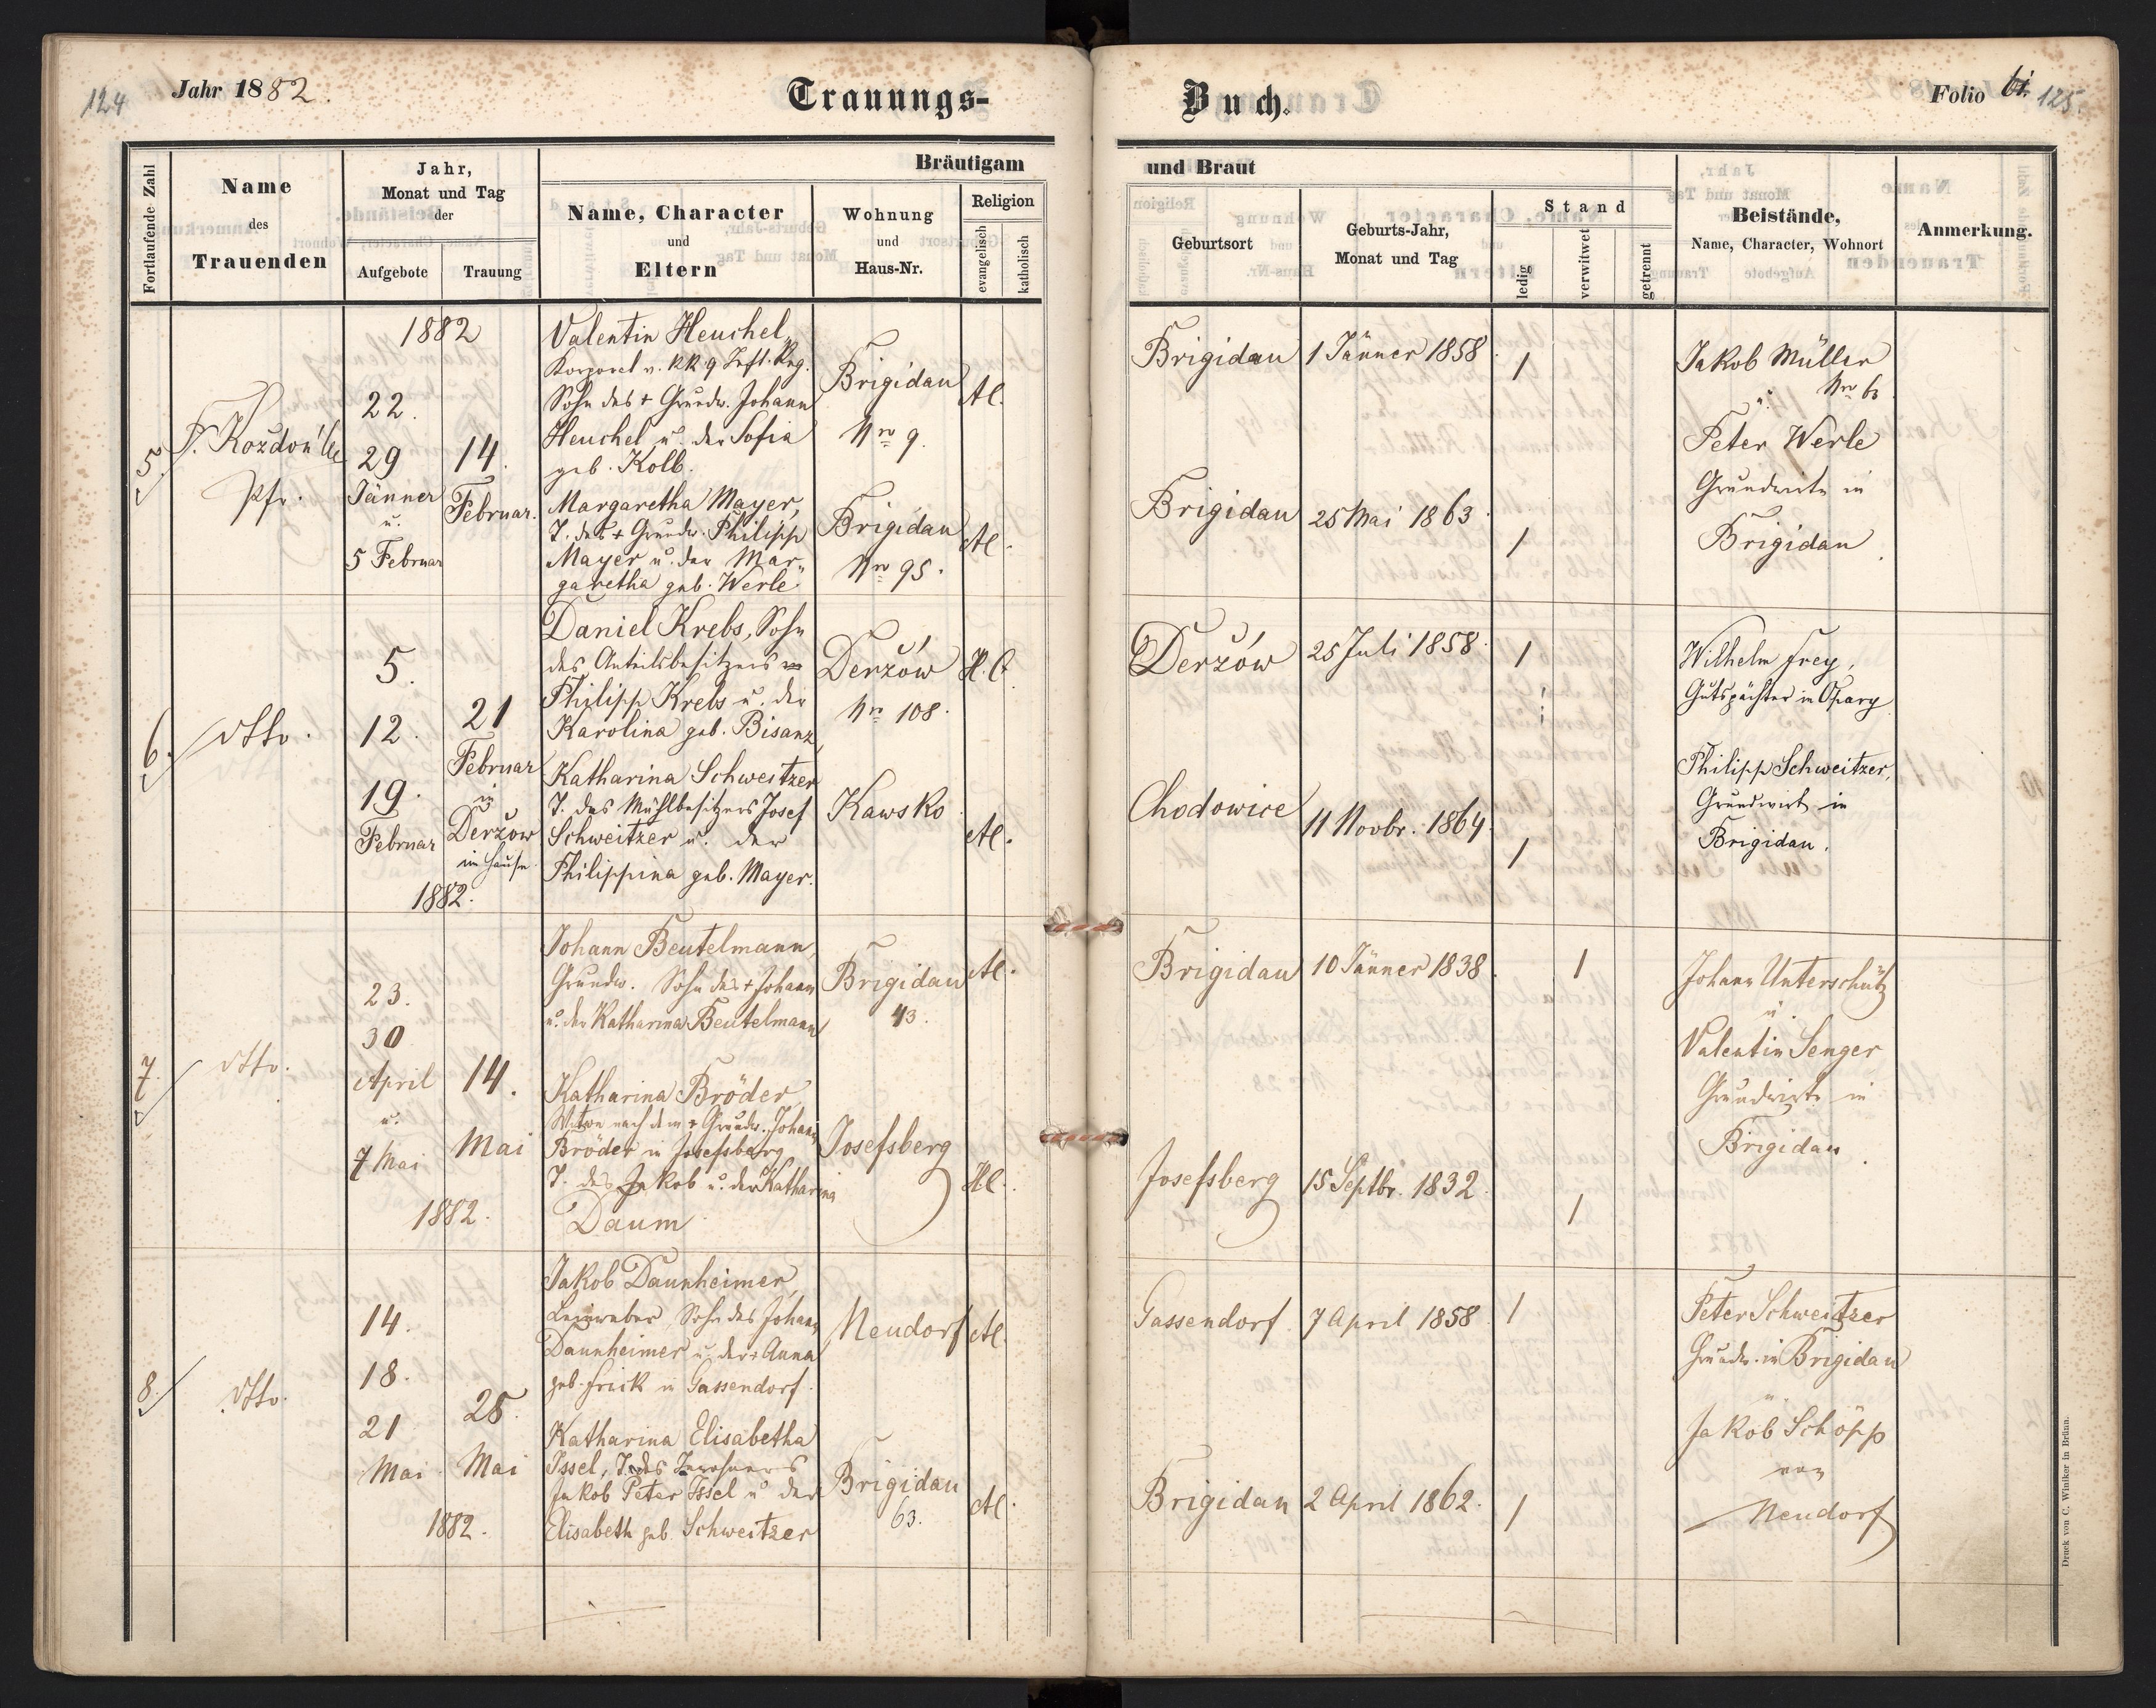 124
Jahr 1882.
Trauungs-
Buch.
Folio
125.
Fortlaufende Zahl
Name
des
Trauenden
Jahr,
Monat und Tag
der
Aufgebote
Trauung
Bräutigam
Name, Character
und
Eltern
Wohnung
und
Haus-Nr.
Religion
evangelisch
katholisch
und Braut
Geburtsort
Geburts-Jahr,
Monat und Tag
Stand
ledig
verwitwet
getrennt
Beistände,
Name, Character, Wohnort
Anmerkung.
5.
Pfr.
1882
22.
29
Jänner
u.
5 Februar
14.
Februar.
Valentin Heuchel,
Korporal v. KK 9 Inft. Reg.
Sohn des + Grundw. Johann
Heuchel u. der Sofia
geb. Kolb.
Brigidau
Nro 9.
Al.
Brigidau
1 Jänner 1858.
1
Jakob Müller
u.
Peter Werle
Grundwirte in
Brigidau.
Margaretha Mayer,
T. des + Grundw. Philipp
Mayer u. der Mar-
garetha geb. Werle
Brigidau
Nro 95.
Al.
Brigidau
25 Mai 1863.
1
6.
dtto.
5.
12.
19.
Februar
21
Februar
in
Derżów
im Hause
1882.
Daniel Krebs, Sohn
des Anteilsbesitzers
Philipp Krebs u. der
Karolina geb. Bisanz,
Derżów
Nro 108.
H. C.
Derżów
25 Juli 1858.
1
Wilhelm Frey,
Gutspächter in Opary
Katharina Schweitzer
T. des Mühlbesitzers Josef
Schweitzer u. der
Philippina geb. Mayer.
Kawsko
Al.
Chodowice
11 Novbr. 1864.
1
Philipp Schweitzer,
Grundwirt in
Brigidau.
7.
dtto.
23.
30
April
u.
7 Mai
14.
Mai
1882.
Johann Beutelmann,
Grundw. Sohn des + Johann
u. der Katharina Beutelmann
Brigidau
43.
Al.
Brigidau
10 Jänner 1838.
1
Johann Unterschütz
u.
Valentin Senger
Grundwirte in
Brigidau.
Katharina Bröder,
Witwe nach dem + Grundw. Johann
Bröder in Josefsberg
T. des Jakob u. der Katharina
Daum
Josefsberg
Hl.
Josefsberg
15 Septbr. 1832.
1
8.
dtto.
14.
18.
21
Mai
25.
Mai
1882.
Jakob Daunheimer,
Leinweber, Sohn des Johann
Daunheimer u. der + Anna
geb. Frick in Gassendorf.
Neudorf
Al.
Gassendorf.
7 April 1858
1
Peter Schweitzer
Grundw. in Brigidau
u.
Jakob Schöpp
von
Neudorf
Katharina Elisabetha
Issel, T. des Inwohners
Jakob Peter Issel u. der
Elisabeth geb. Schweitzer
Brigidau
63.
Al.
Brigidau
2 April 1862.
1
Druck von C. Winiker in Brünn.